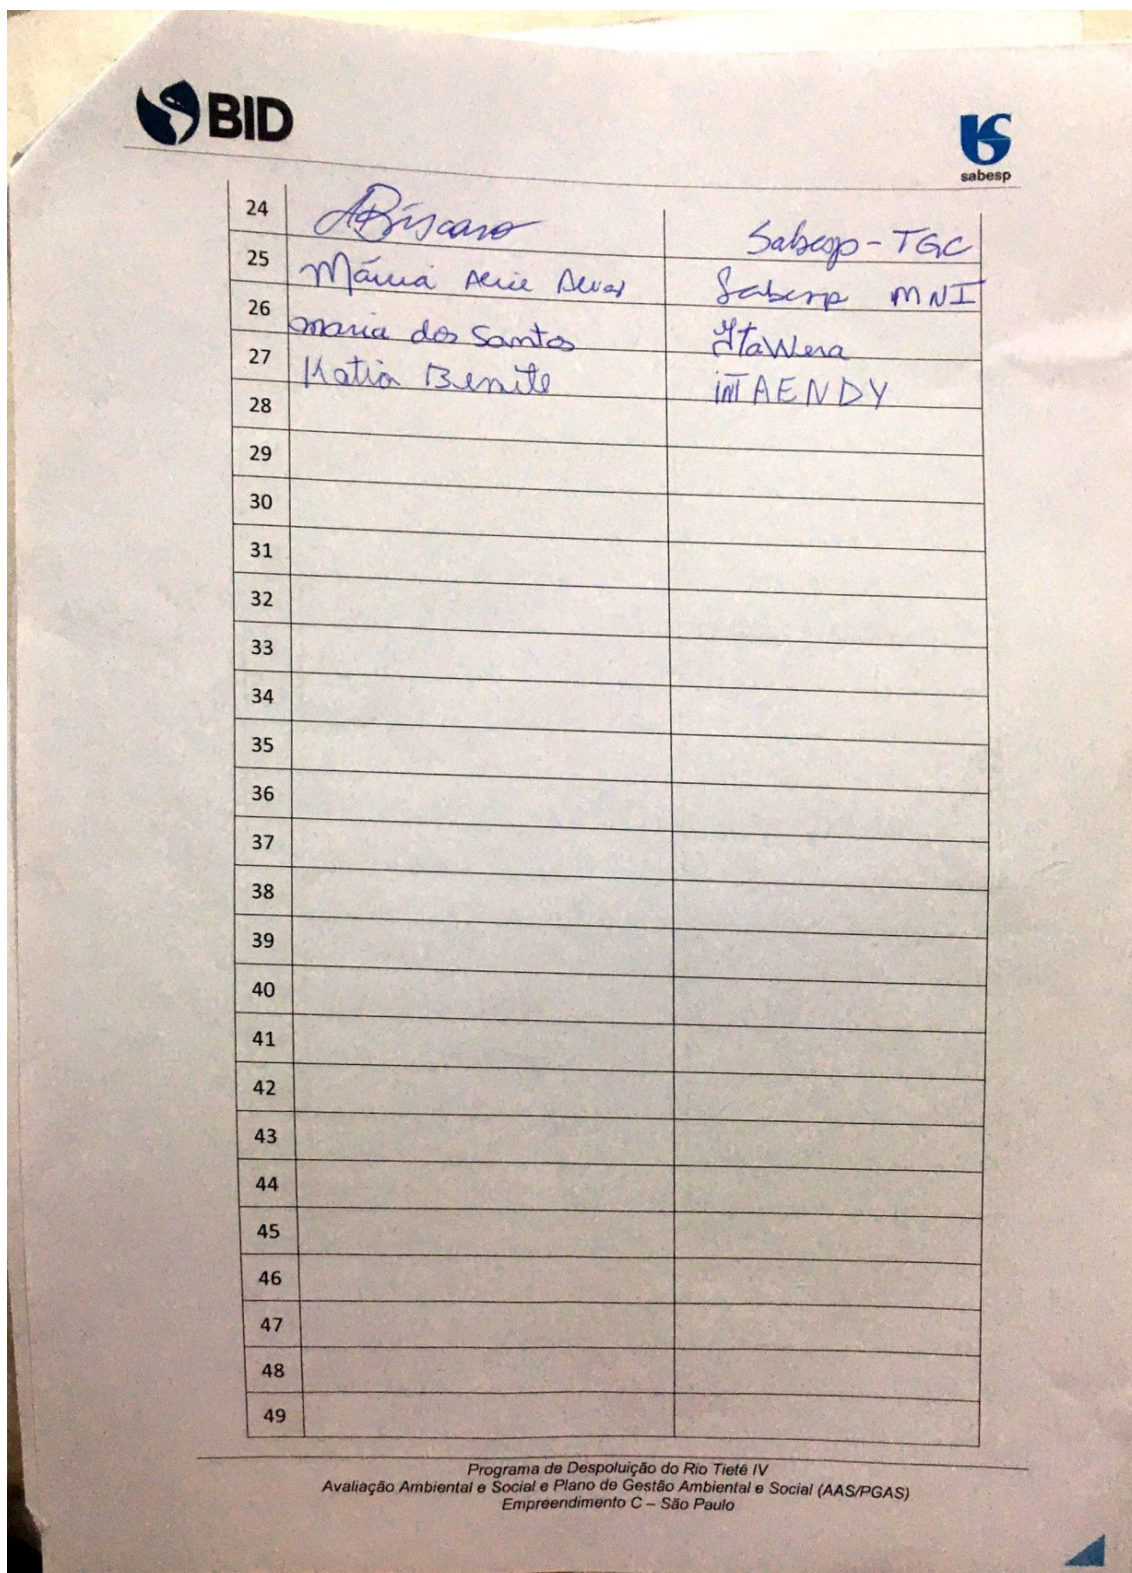 BID
sabesp
24 ABíscaro Sabesp-TGC
25 Márcia Sabesp MNI
26 maria dos Santos ItaWera
27 Katia Benite iNTAENDY
28
29
30
31
32
33
34
35
36
37
38
39
40
41
42
43
44
45
46
47
48
49
Programa de Despoluição do Rio Tietê IV
Avaliação Ambiental e Social e Plano de Gestão Ambiental e Social (AAS/PGAS)
Empreendimento C – São Paulo